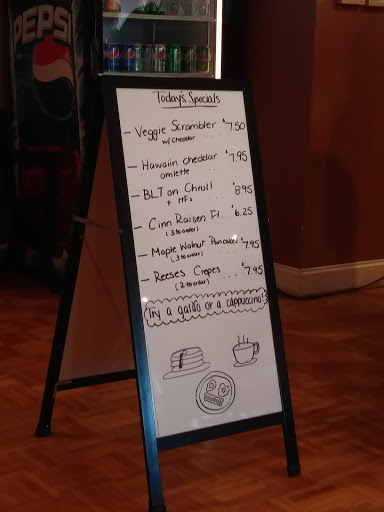 PEPSI
Today's Specials
- Veggie Scrambler $7.50
w/ Cheddar ...
- Hawaiin cheddar $7.95
omlette ....
- BLT on Chrull $8.95
+ HFs
- Cinn Raisen Ft... $6.25
(3 to order)
- Maple Walnut Pancakes $7.95
(3 to order)
- Reeses Crepes .... $7.95
(2 to order)
Try a galão or a cappuccino!